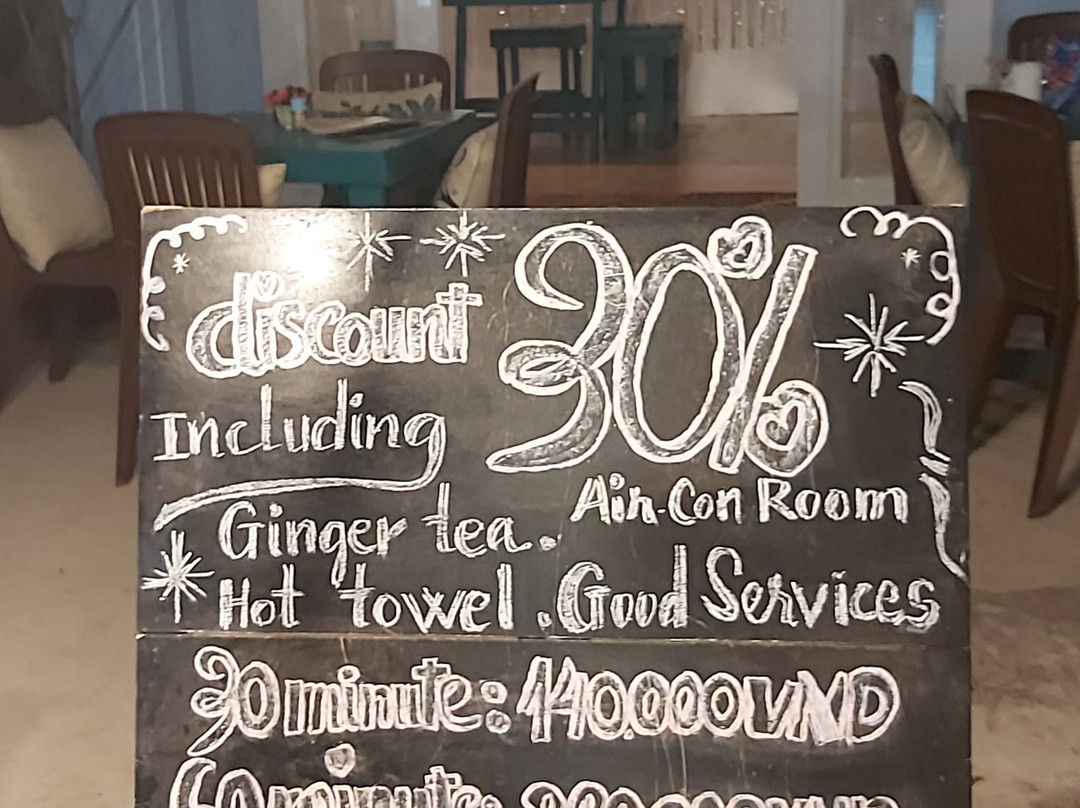 discount 30%
Including
Air-Con Room
Ginger tea.
Hot towel . Good Services
30 minute: 140.000VND
60 minute: